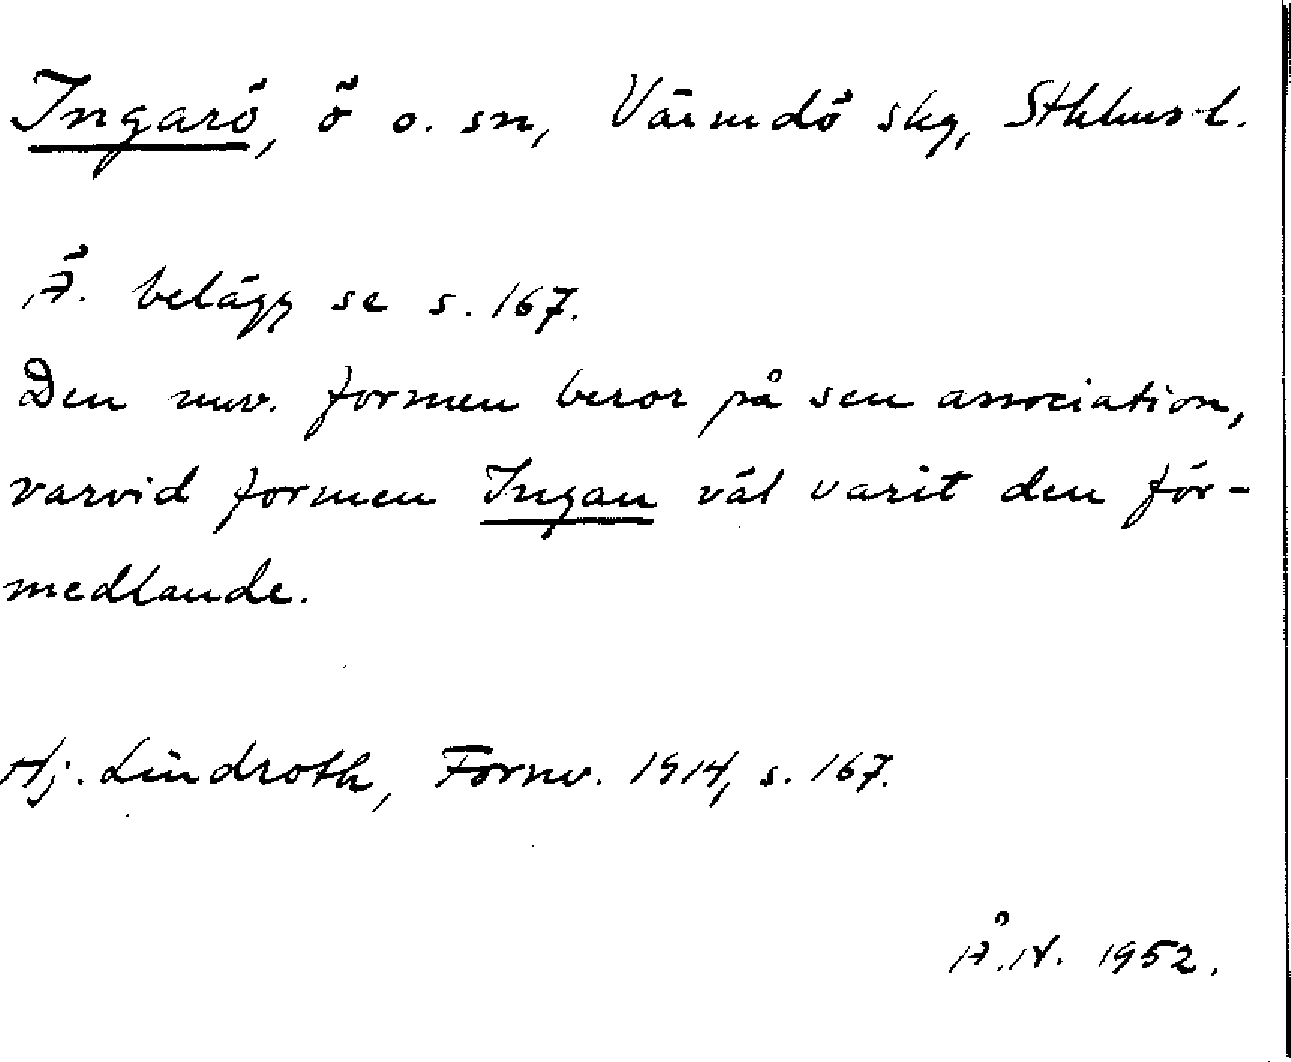 Ingarö, ö o. sn, Värmdö skg, Sthlms l.
Ä. belägg se s. 167.
Den nuv. formen beror på sen association,
varvid formen Ingan väl varit den för-
medlande.
Hj. Lindroth, Fornv. 1914, s. 167.
Å.N. 1952.